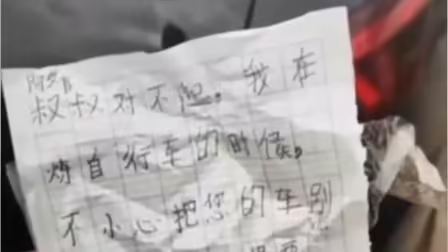 叔叔对不起。我在
炼自行车的时候,
不小心把您的车别